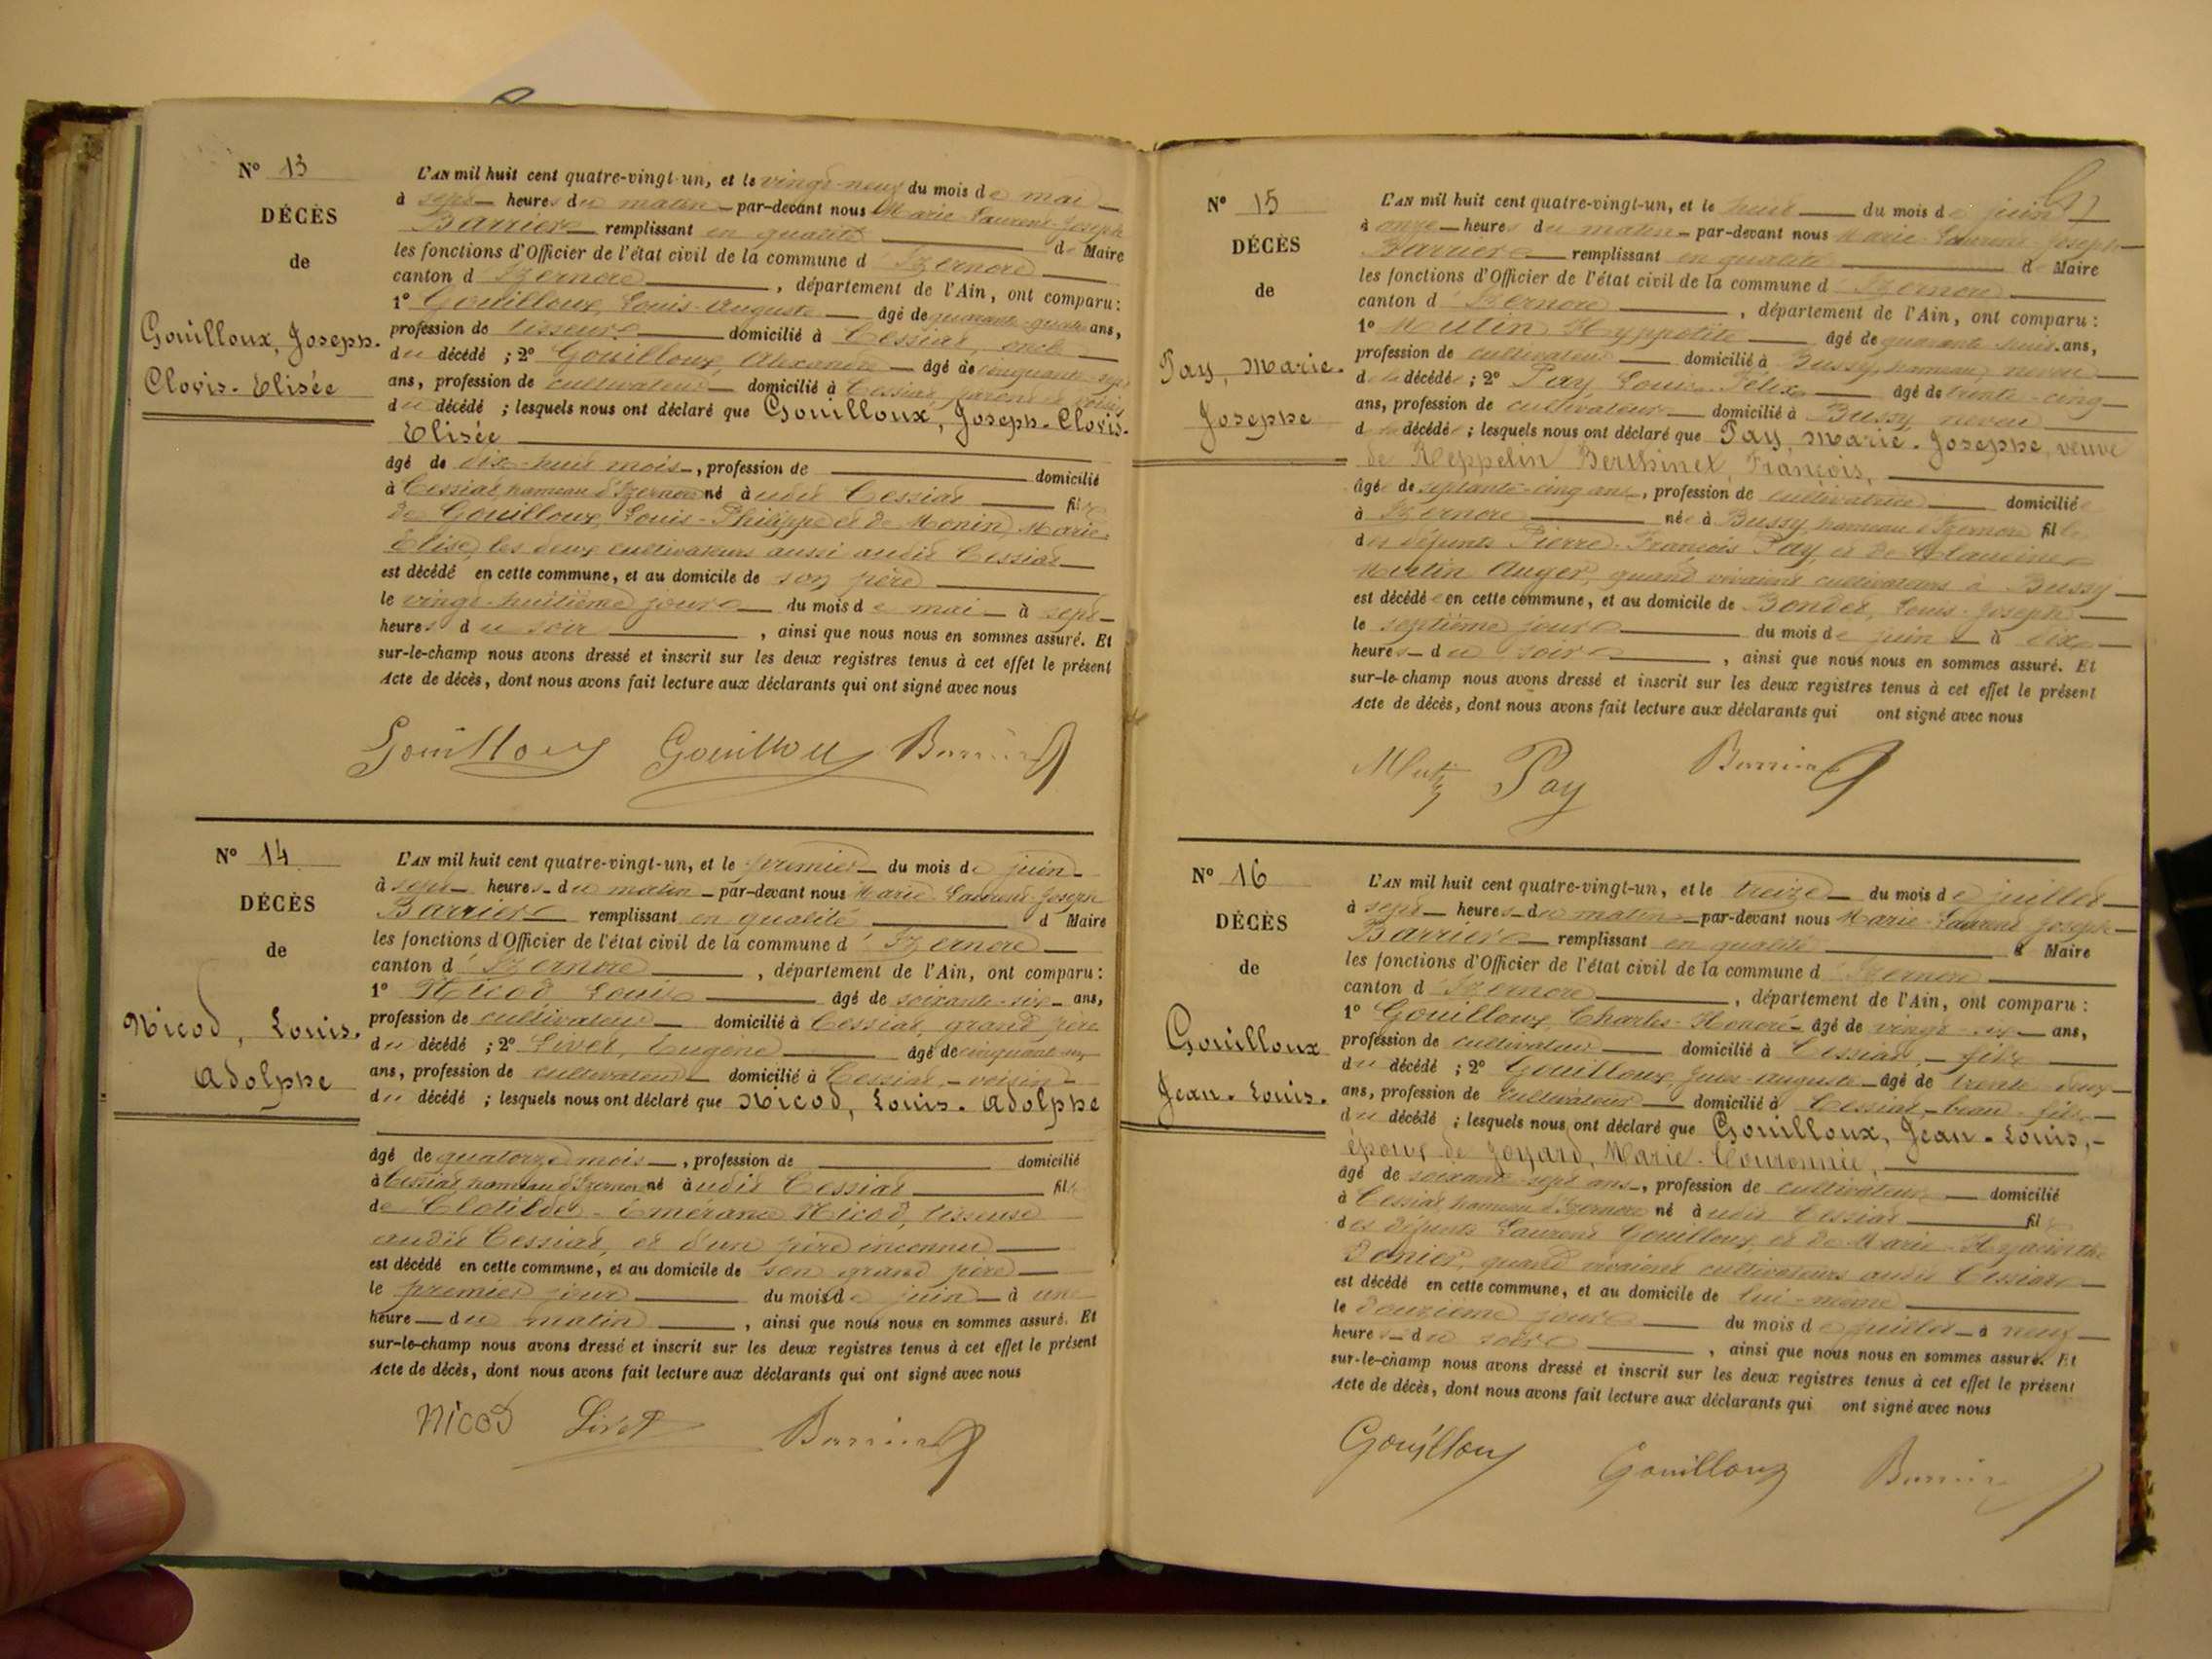 N° 13
DÉCÈS
de
Gouilloux, Joseph-
Clovis-Elisée
L'AN mil huit cent quatre-vingt-un, et le vingt-neuf du mois de mai
à sept heures du matin par-devant nous Marie-Laurent-Joseph
Barrier remplissant en qualité de Maire
les fonctions d'Officier de l'état civil de la commune d'Izernore
canton d'Izernore, département de l'Ain, ont comparu:
1° Gouilloux, Louis-Auguste âgé de quarante-quatre ans,
profession de tisseur domicilié à Cessiat, oncle
du décédé; 2° Gouilloux, Alexandre âgé de cinquante-sept
ans, profession de cultivateur domicilié à Cessiat, parent et voisin
du décédé; lesquels nous ont déclaré que Gouilloux, Joseph-Clovis-
Elisée
âgé de dix-huit mois, profession de domicilié
à Cessiat, hameau d'Izernore né audit Cessiat fils
de Gouilloux, Louis-Philippe et de Monin, Marie-
Elise, les deux cultivateurs aussi audit Cessiat
est décédé en cette commune, et au domicile de son père
le vingt-huitième jour du mois de mai à sept
heures du soir, ainsi que nous nous en sommes assuré. Et
sur-le-champ nous avons dressé et inscrit sur les deux registres tenus à cet effet le présent
Acte de décès, dont nous avons fait lecture aux déclarants qui ont signé avec nous
Gouilloux Gouilloux Barrier
N° 14
DÉCÈS
de
Nicod, Louis-
Adolphe
L'AN mil huit cent quatre-vingt-un, et le premier du mois de juin
à sept heures du matin par-devant nous Marie-Laurent-Joseph
Barrier remplissant en qualité d Maire
les fonctions d'Officier de l'état civil de la commune d'Izernore
canton d'Izernore, département de l'Ain, ont comparu:
1° Nicod Louis âgé de soixante-six ans,
profession de cultivateur domicilié à Cessiat, grand père
du décédé; 2° Livet, Eugène âgé de cinquante-un
ans, profession de cultivateur domicilié à Cessiat, voisin
du décédé; lesquels nous ont déclaré que Nicod, Louis-Adolphe
âgé de quatorze mois, profession de domicilié
à Cessiat, hameau d'Izernore né audit Cessiat fils
de Clotilde-Emérance Nicod, tisseuse
audit Cessiat, et d'un père inconnu
est décédé en cette commune, et au domicile de son grand père
le premier jour du mois de juin à une
heure du matin, ainsi que nous nous en sommes assuré. Et
sur-le-champ nous avons dressé et inscrit sur les deux registres tenus à cet effet le présent
Acte de décès, dont nous avons fait lecture aux déclarants qui ont signé avec nous
Nicod Livet Barrier
N° 15
DÉCÈS
de
Pay, Marie-
Josephe
L'AN mil huit cent quatre-vingt-un, et le huit du mois de juin
à onze heures du matin par-devant nous Marie-Laurent-Joseph
Barrier remplissant en qualité de Maire
les fonctions d'Officier de l'état civil de la commune d'Izernore
canton d'Izernore, département de l'Ain, ont comparu:
1° Mutin Hyppolite âgé de quarante-huit ans,
profession de cultivateur domicilié à Bussy, hameau, neveu
de la décédée; 2° Pay Louis-Félix âgé de trente-cinq
ans, profession de cultivateur domicilié à Bussy, neveu
de la décédée; lesquels nous ont déclaré que Pay, Marie-Josephe, veuve
de Reppelin Berthinet, François,
âgée de septante-cinq ans, profession de cultivatrice domiciliée
à Izernore née à Bussy, hameau d'Izernore fille
des défunts Pierre-François Pay, et de Claudine
Mutin Auger, quand vivaient cultivateurs à Bussy
est décédée en cette commune, et au domicile de Bondet, Louis-Joseph
le septième jour du mois de juin à dix
heures du soir, ainsi que nous nous en sommes assuré. Et
sur-le-champ nous avons dressé et inscrit sur les deux registres tenus à cet effet le présent
Acte de décès, dont nous avons fait lecture aux déclarants qui ont signé avec nous
Mutin Pay Barrier
N° 16
DÉCÈS
de
Gouilloux
Jean-Louis-
L'AN mil huit cent quatre-vingt-un, et le treize du mois de juillet
à sept heures du matin par-devant nous Marie-Laurent Joseph
Barrier remplissant en qualité d Maire
les fonctions d'Officier de l'état civil de la commune d'Izernore
canton d'Izernore, département de l'Ain, ont comparu:
1° Gouilloux, Charles-Honoré âgé de vingt-six ans,
profession de cultivateur domicilié à Cessiat, fils
du décédé; 2° Gouilloux, Jules-Auguste âgé de trente-deux
ans, profession de cultivateur domicilié à Cessiat, beau-fils
du décédé; lesquels nous ont déclaré que Gouilloux, Jean-Louis,
époux de Joyard, Marie-Couronnée,
âgé de soixante-sept ans, profession de cultivateur domicilié
à Cessiat, hameau d'Izernore né audit Cessiat fils
des défunts Laurent Gouilloux et de Marie-Hyacinthe
quand vivaient cultivateurs audit Cessiat
est décédé en cette commune, et au domicile de lui-même
le douzième jour du mois de juillet à neuf
heures du soir, ainsi que nous nous en sommes assuré. Et
sur-le-champ nous avons dressé et inscrit sur les deux registres tenus à cet effet le présent
Acte de décès, dont nous avons fait lecture aux déclarants qui ont signé avec nous
Gouilloux Gouilloux Barrier